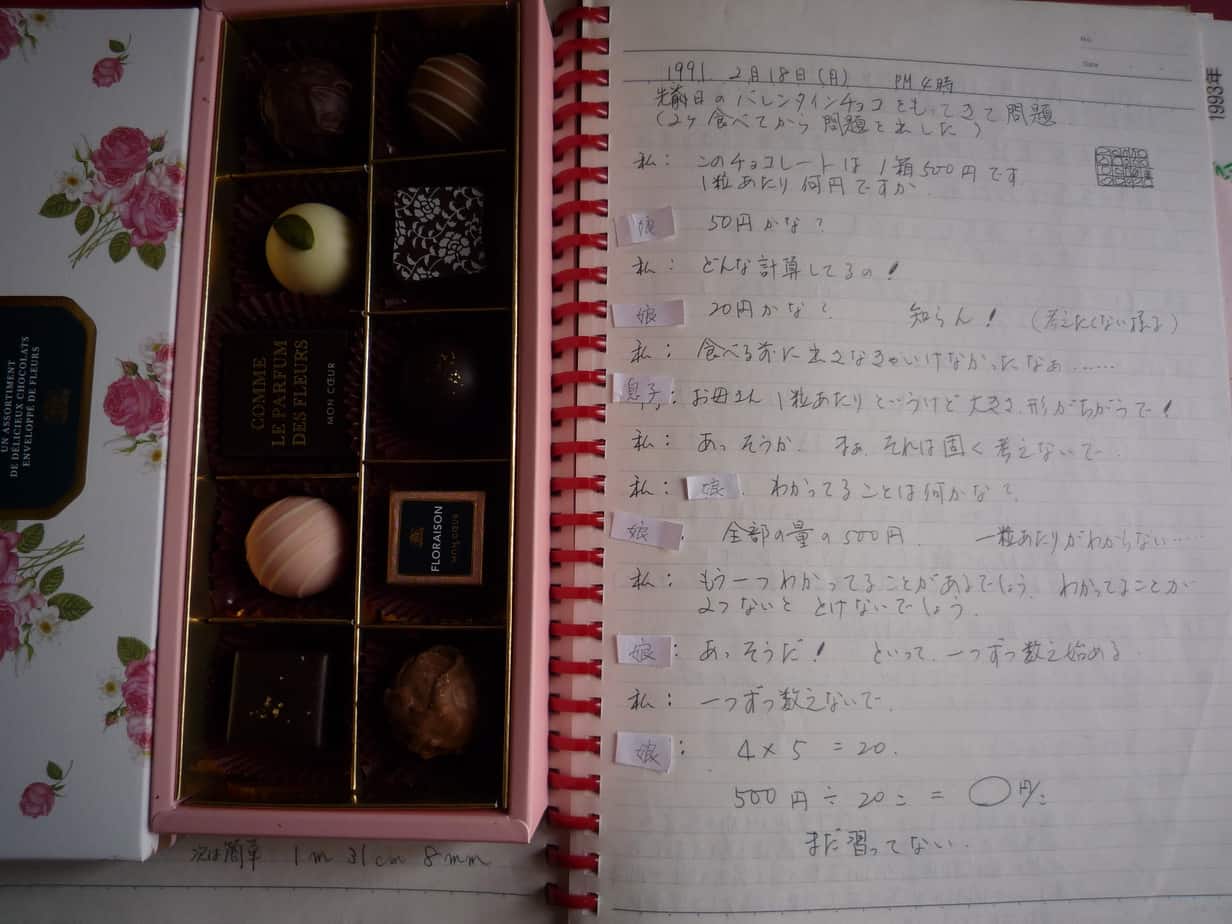 UN ASSORTIMENT
DE DÉLICIEUX CHOCOLATS
ENVELOPPÉ DE FLEURS
COMME
LE PARFUM
DES FLEURS
MON CŒUR
FLORAISON
MON CŒUR
次は簡単 1m 31cm 8mm
No.
Date
1993年
1991 2月18日(月) PM 4時
先前日のバレンタインチョコをもってきて問題
(2ヶ食べてから問題を出した)
私: このチョコレートは1箱500円です
1粒あたり何円ですか
娘 50円かな?
私: どんな計算してるの!
娘 20円かな? 知らん! (考えたくない様子)
私: 食べる前に出さなきゃいけなかったなぁ……
息子: お母さん1粒あたりというけど大きさ、形がちがうで!
私: あっそうか、まぁ、それは固く考えないで、
私: 娘、わかってることは何かな?
娘. 全部の量の500円. 一粒あたりがわからない……
私: もう一つわかってることがあるでしょう、わかってることが
2つないととけないでしょう.
娘: あっそうだ! といって、一つずつ数え始める
私: 一つずつ数えないで、
娘: 4×5=20.
500円÷20こ=○円/こ
まだ習ってない.